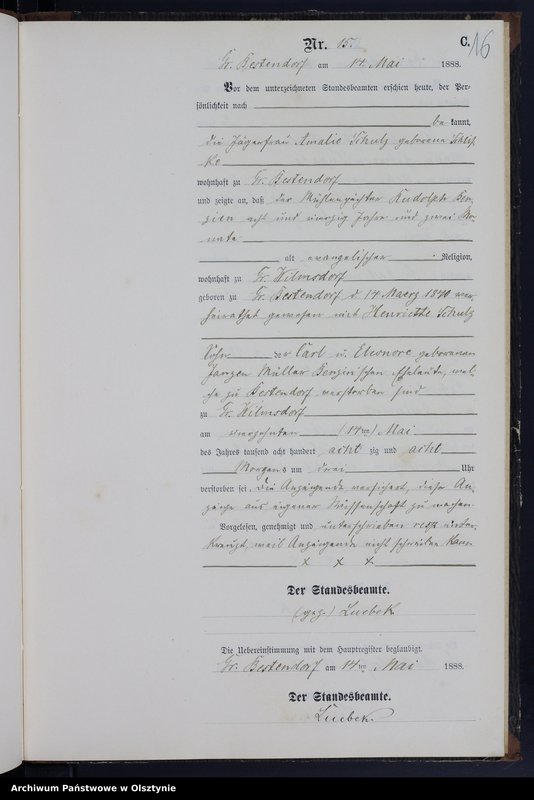 Nr. 15.
C.
16
Gr. Bestendorf am 14 Mai 1888.
Vor dem unterzeichneten Standesbeamten erschien heute, der Per-
sönlichkeit nach
be kannt,
die Jägerfrau Amalie Schulz geborene Schlif-
ke
wohnhaft zu Gr. Bestendorf
und zeigte an, daß der Mühlenpächter Rudolph Ben-
zien acht und vierzig Jahre und zwei Mo-
nate
alt evangelischer Religion,
wohnhaft zu Gr. Wilmsdorf
geboren zu Gr. Bestendorf d. 14 Maerz 1840 ver-
heirathet gewesen mit Henriette Schulz
Sohn der Carl u. Eleonore geborenen
Janzen Müller Benzin'schen Eheleute, wel-
che zu Bestendorf verstorben sind
zu Gr. Wilmsdorf
am vierzehnten (14ten) Mai
des Jahres tausend acht hundert acht zig und acht
Morgens um drei Uhr
verstorben sei. Die Anzeigende versichert, diese An-
zeige aus eigener Wissenschaft zu machen.
Vorgelesen, genehmigt und unterschrieben resp. unter-
kreuzt, weil Anzeigende nicht schreiben kann
x x x
Der Standesbeamte.
(gez.) Luebek
Die Uebereinstimmung mit dem Hauptregister beglaubigt.
Gr. Bestendorf am 14ten Mai 1888.
Der Standesbeamte.
Luebek
Archiwum Państwowe w Olsztynie